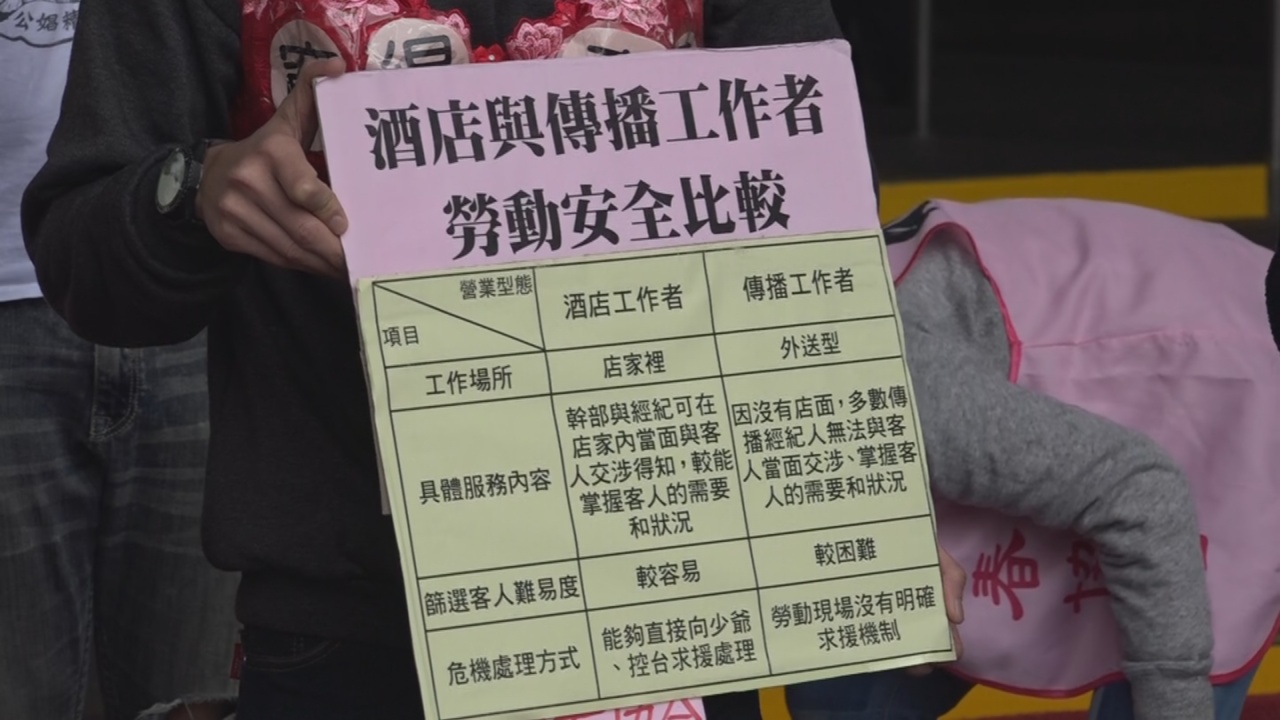 公娼
酒店與傳播工作者
勞動安全比較
營業型態
項目
酒店工作者
傳播工作者
工作場所
店家裡
外送型
具體服務內容
幹部與經紀可在
店家內當面與客
人交涉得知，較能
掌握客人的需要
和狀況
因沒有店面，多數傳
播經紀人無法與客
人當面交涉、掌握客
人的需要和狀況
篩選客人難易度
較容易
較困難
危機處理方式
能夠直接向少爺
、控台求援處理
勞動現場沒有明確
求援機制
春